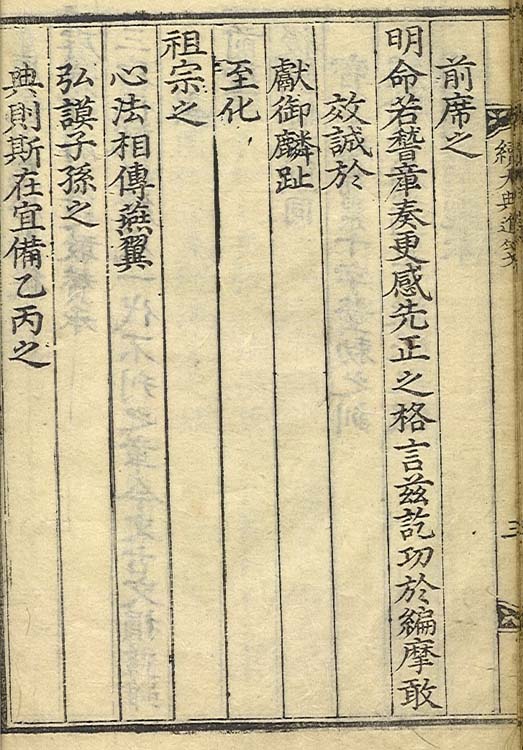 續大典進箋
三
前席之
明命若瞽章奏更感先正之格言茲訖功於編摩敢
效誠於
獻御麟趾
至化
祖宗之
心法相傳燕翼
弘謨子孫之
典則斯在宜備乙丙之